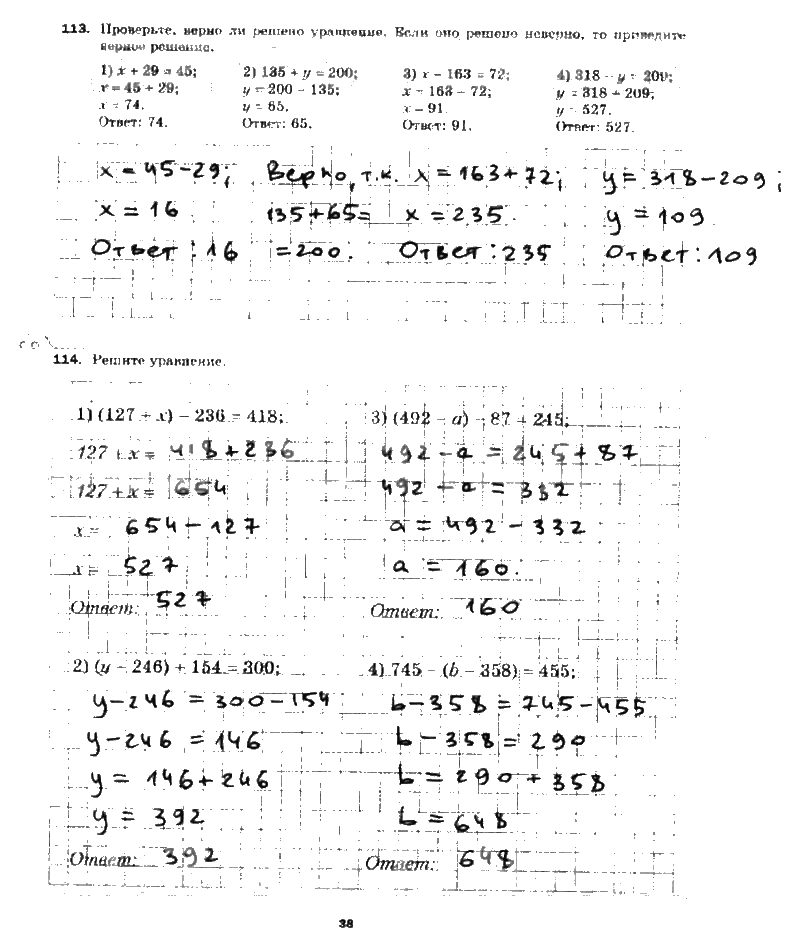 113. Проверьте, верно ли решено уравнение. Если оно решено неверно, то приведите
верное решение.
1) x + 29 = 45;
x = 45 + 29;
x = 74.
Ответ: 74.
2) 135 + y = 200;
y = 200 - 135;
y = 65.
Ответ: 65.
3) x - 163 = 72;
x = 163 - 72;
x = 91.
Ответ: 91.
4) 318 - y = 209;
y = 318 + 209;
y = 527.
Ответ: 527.
x = 45-29;
x = 16
Ответ: 16
Верно, т.к.
135+65=
=200.
x = 163+72;
x = 235.
Ответ: 235
y = 318-209;
y = 109
Ответ: 109
114. Решите уравнение.
1) (127 + x) - 236 = 418;
127 + x = 418+236
127 + x = 654
x = 654-127
x = 527
Ответ: 527
2) (y - 246) + 154 = 300;
y-246 = 300-154
y-246 = 146
y = 146+246
y = 392
Ответ: 392
3) (492 - a) - 87 = 245;
492-a = 245+87
492-a = 332
a = 492-332
a = 160.
Ответ: 160
4) 745 - (b - 358) = 455;
b-358 = 745-455
b-358 = 290
b = 290+358
b = 648
Ответ: 648
38